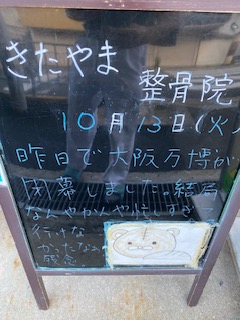 きたやま
整骨院
10月13日(火)
昨日で大阪万博が
閉幕しました。結局
なんやかんや忙しすぎ
行けな
かったなぁ
残念